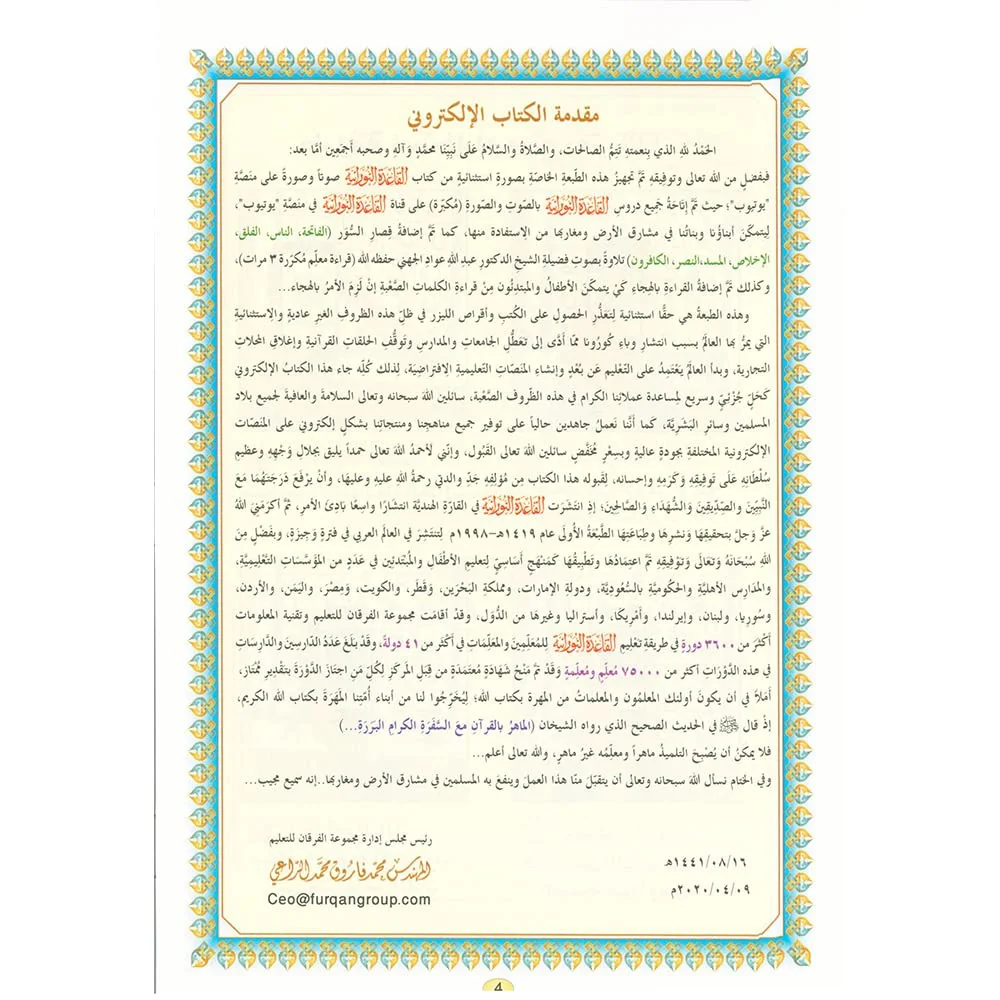 مقدمة الكتاب الإلكتروني
الحَمْدُ للهِ الذي بِنعمتهِ تَتِمُّ الصالحات، والصَّلاةُ والسَّلامُ عَلَى نَبِيِّنَا محمَّدٍ وَآلهِ وصحبه أجمَعِين أمَّا بعد:
فبفضلٍ من الله تعالى وتوفيقهِ تَمَّ تجهيزُ هذه الطَّبعةِ الخاصّةِ بصورةٍ استثنائيةٍ من كتاب القَاعِدَة النُّورَانِيَّة صوتاً وصورةً على منصّةِ
"يوتيوب"؛ حيث تمَّ إتاحَةُ جَميعِ دروسِ القَاعِدَة النُّورَانِيَّة بالصّوتِ والصّورةِ (مُكبّرة) على قناة القَاعِدَة النُّورَانِيَّة في منصّةِ "يوتيوب"،
لِيَتمكّنَ أبناؤُنا وبناتُنا في مشارق الأرض ومغاربها من الاِستفادة منها، كما تمَّ إضافةُ قِصارِ السُّوَر (الفاتحة، الناس، الفلق،
الإخلاص، المسد،النصر، الكافرون) تلاوةً بصوتِ فضيلةِ الشيخِ الدكتور عبدِ اللهِ عوادِ الجهني حفظه الله (قراءة معلّم مُكرّرة ٣ مرات)،
وكذلك تمَّ إضافةُ القراءةِ بالهِجاءِ كَيْ يتمكّنَ الأطفالُ والمبتدِئون مِنْ قراءةِ الكلماتِ الصَّعْبةِ إنْ لَزِمَ الأمرُ بالهجاء...
وهذه الطبعةُ هي حقًّا استثنائية لِتَعذُّرِ الحصولِ على الكُتبِ وأقراص الليزر في ظلّ هذه الظروفِ الغير عاديةٍ والاِستثنائيةِ
التي يمرُّ بها العالَمُ بسبب انتشارِ وباءِ كُورُونا ممّا أدَّى إلى تعَطُّلِ الجامعاتِ والمدارسِ وتوقُّفِ الحلقاتِ القرآنيةِ وإغلاقِ المحلاتِ
التجارية، وبدأ العالَمُ يَعْتَمِدُ على التَّعليم عَن بُعْدٍ وإنشاءِ المنَصّاتِ التَّعليميةِ الاِفتراضيّةِ، لِذلك كُلِّه جاء هذا الكتابُ الإلكتروني
كَحَلٍ جُزْئِيٍ وسريعٍ لِمساعدة عملائنا الكرام في هذه الظّروف الصَّعْبة، سائلين اللهَ سبحانه وتعالى السلامةَ والعافيةَ لجميع بلاد
المسلمين وسائرِ البَشَريَّة، كما أنَّنا نعملُ جاهدين حالياً على توفير جميع مناهجنا ومنتجاتِنا بشكلٍ إلكتروني على المنَصّات
الإلكترونية المختلفةِ بجودةٍ عاليةٍ وبسِعْرٍ مُخَفَّضٍ سائلين اللهَ تعالى القَبُول، وإنّني لأحمدُ اللهَ تعالى حمداً يليق بجلالِ وَجْهِهِ وعظيم
سُلْطَانِهِ عَلَى تَوفِيقِهِ وَكَرَمِهِ وإحسانه، لِقبولِه هذا الكتابِ من مُؤلفِهِ جَدِّ والدتي رحمةُ اللهِ عليهِ وعليها، وأنْ يرْفَعَ دَرَجَتَهُمَا مَعَ
النَّبِيّينَ والصِّدّيقِينَ وَالشُّهَدَاءِ وَالصَّالحِينَ؛ إذِ انتَشَرَت القَاعِدَة النُّورَانِيَّة في القارّةِ الهنديَّةِ انتشَارًا واسِعًا بَادِئَ الأمرِ، ثمَّ أكرَمَنيَ اللهُ
عزَّ وَجلَّ بتحقيقِهَا ونَشرِهَا وطِبَاعَتِهَا الطَّبْعَةَ الأولَى عام ١٤١٩هـ-١٩٩٨م لِتنتَشِرَ في العالَم العربي في فترةٍ وَجِيزَةٍ، وبفَضْلٍ مِنَ
اللهِ سُبْحَانَهُ وَتَعَالَى وَتَوفِيقِهِ تمَّ اعتِمَادُهَا وَتَطبيقُهَا كَمَنْهَجٍ أَسَاسِيٍّ لِتعليمِ الأطفَالِ والمُبْتَدئين في عَدَدٍ من المُؤَسَّسَاتِ التَّعْلِيمِيَّةِ،
والمدَارِسِ الأهليَّةِ والحُكُوميَّةِ بالسُّعُوديَّة، ودولةِ الإمارات، ومملكةِ البَحْرَين، وَقَطَر، والكويت، وَمِصْرَ، واليَمَن، والأردن،
وسُورِيا، ولبنان، وإيرلندا، وأمْرِيكَا، وأستراليا وغَيرِهَا من الدُّوَل، وقَدْ أقامَت مجموعة الفرقان للتعليم وتقنية المعلومات
أكْثرَ من ٣٦٠٠ دورةٍ في طريقةِ تعْلِيمِ القَاعِدَة النُّورَانِيَّة لِلمُعَلِّمِينَ والمعَلِّمَات في أكثَر من ٤١ دولةً، وقَدْ بَلَغَ عَدَدُ الدّارِسينَ والدَّارِسَاتِ
في هذه الدَّوْرَات أكثر من ٧٥٠٠٠ مُعلِّمٍ ومُعلِّمةٍ وَقَدْ تمَّ مَنْحُ شَهَادَةٍ مُعتَمَدَةٍ من قِبَلِ المركَزِ لِكُلِّ مَنِ اجتَازَ الدَّوْرَةَ بتَقْدِيرِ مُمْتَاز،
أَمَلاً في أن يكونَ أولئك المعلّمُون والمعلمات من المهرةِ بكتاب الله؛ لِيُخَرِّجُوا لنا من أبناء أُمَّتِنا المَهَرَةَ بكتاب الله الكريم،
إذْ قال ﷺ في الحديث الصحيح الذي رواه الشيخان (الماهرُ بالقرآنِ معَ السَّفَرَةِ الكرامِ البَرَرَةِ...)
فلا يمكنُ أن يُصْبِحَ التلميذُ ماهراً ومعلِّمُه غيرُ ماهرٍ، والله تعالى أعلم...
وفي الختام نسأل اللهَ سبحانه وتعالى أن يتقبّلَ منّا هذا العملَ وينفعَ به المسلمين في مشارق الأرض ومغاربها..إنه سميع مجيب...
رئيس مجلس إدارة مجموعة الفرقان للتعليم
المهندس محمد فاروق محمد الراعي
Ceo@furqangroup.com
١٤٤١/٠٨/١٦هـ
٢٠٢٠/٠٤/٠٩م
4